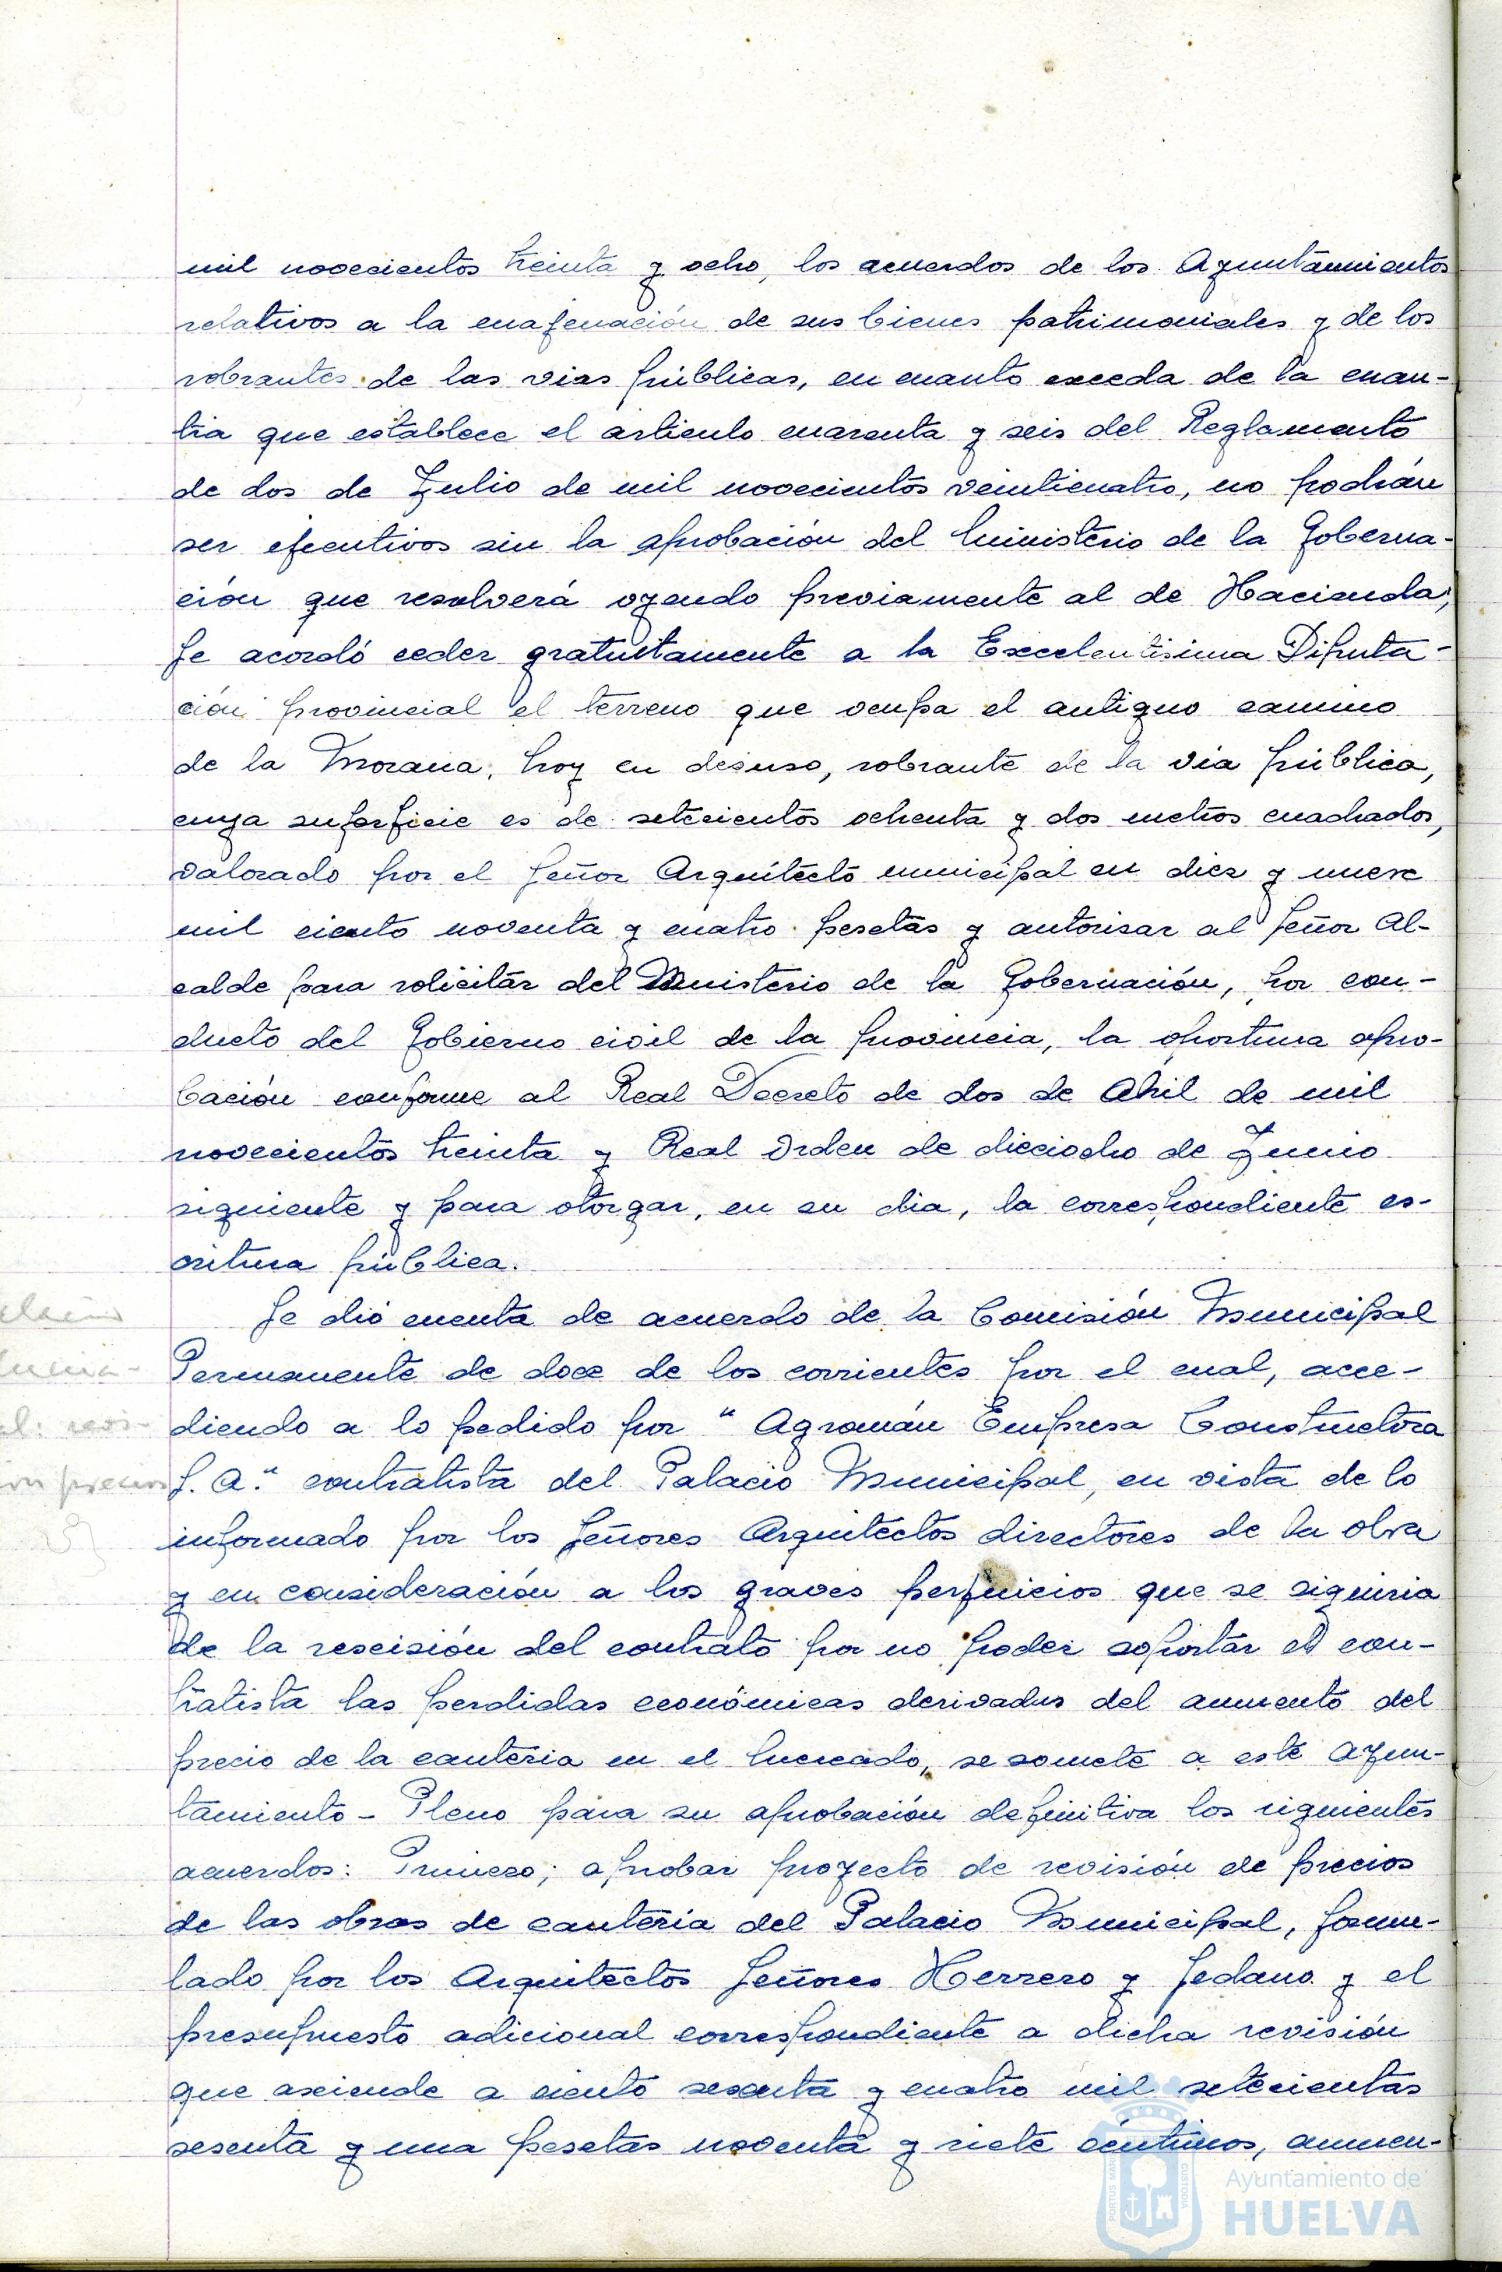 mil novecientos treinta y ocho, los acuerdos de los Ayuntamientos
relativos a la enajenación de sus bienes patrimoniales y de los
sobrantes de las vias públicas, en cuanto exceda de la cuan-
tia que establece el articulo cuarenta y seis del Reglamento
de dos de Julio de mil novecientos veinticuatro, no podrán
ser ejecutivos sin la aprobación del Ministerio de la Goberna-
ción que resolverá oyendo previamente al de Hacienda;
Se acordó ceder gratuitamente a la Excelentisima Diputa-
ción provincial el terreno que ocupa el antiguo camino
de la Morana, hoy en desuso, sobrante de la via pública,
cuya superficie es de setecientos ochenta y dos metros cuadrados,
valorado por el Señor Arquitecto municipal en diez y nueve
mil ciento noventa y cuatro pesetas y autorizar al Señor Al-
calde para solicitar del Ministerio de la Gobernación, por con-
ducto del Gobierno civil de la provincia, la oportuna apro-
bación conforme al Real Decreto de dos de Abril de mil
novecientos treinta y Real Orden de dieciocho de Junio
siguiente y para otorgar, en su dia, la correspondiente es-
critura pública.
Se dió cuenta de acuerdo de la Comisión Municipal
Permanente de doce de los corrientes por el cual, acce-
diendo a lo pedido por "Agromán Empresa Constructora
S. A." contratista del Palacio Municipal, en vista de lo
informado por los Señores Arquitectos directores de la obra
y en consideración a los graves perjuicios que se siguiria
de la rescisión del contrato por no poder soportar el con-
tratista las perdidas económicas derivadas del aumento del
precio de la canteria en el mercado, se somete a este Ayun-
tamiento-Pleno para su aprobación definitiva los siguientes
acuerdos: Primero; aprobar proyecto de revisión de precios
de las obras de canteria del Palacio Municipal, formu-
lado por los Arquitectos Señores Herrero y Sedano y el
presupuesto adicional correspondiente a dicha revisión
que asciende a ciento sesenta y cuatro mil setecientas
sesenta y una pesetas noventa y siete céntimos, aumen-
Ayuntamiento de
HUELVA